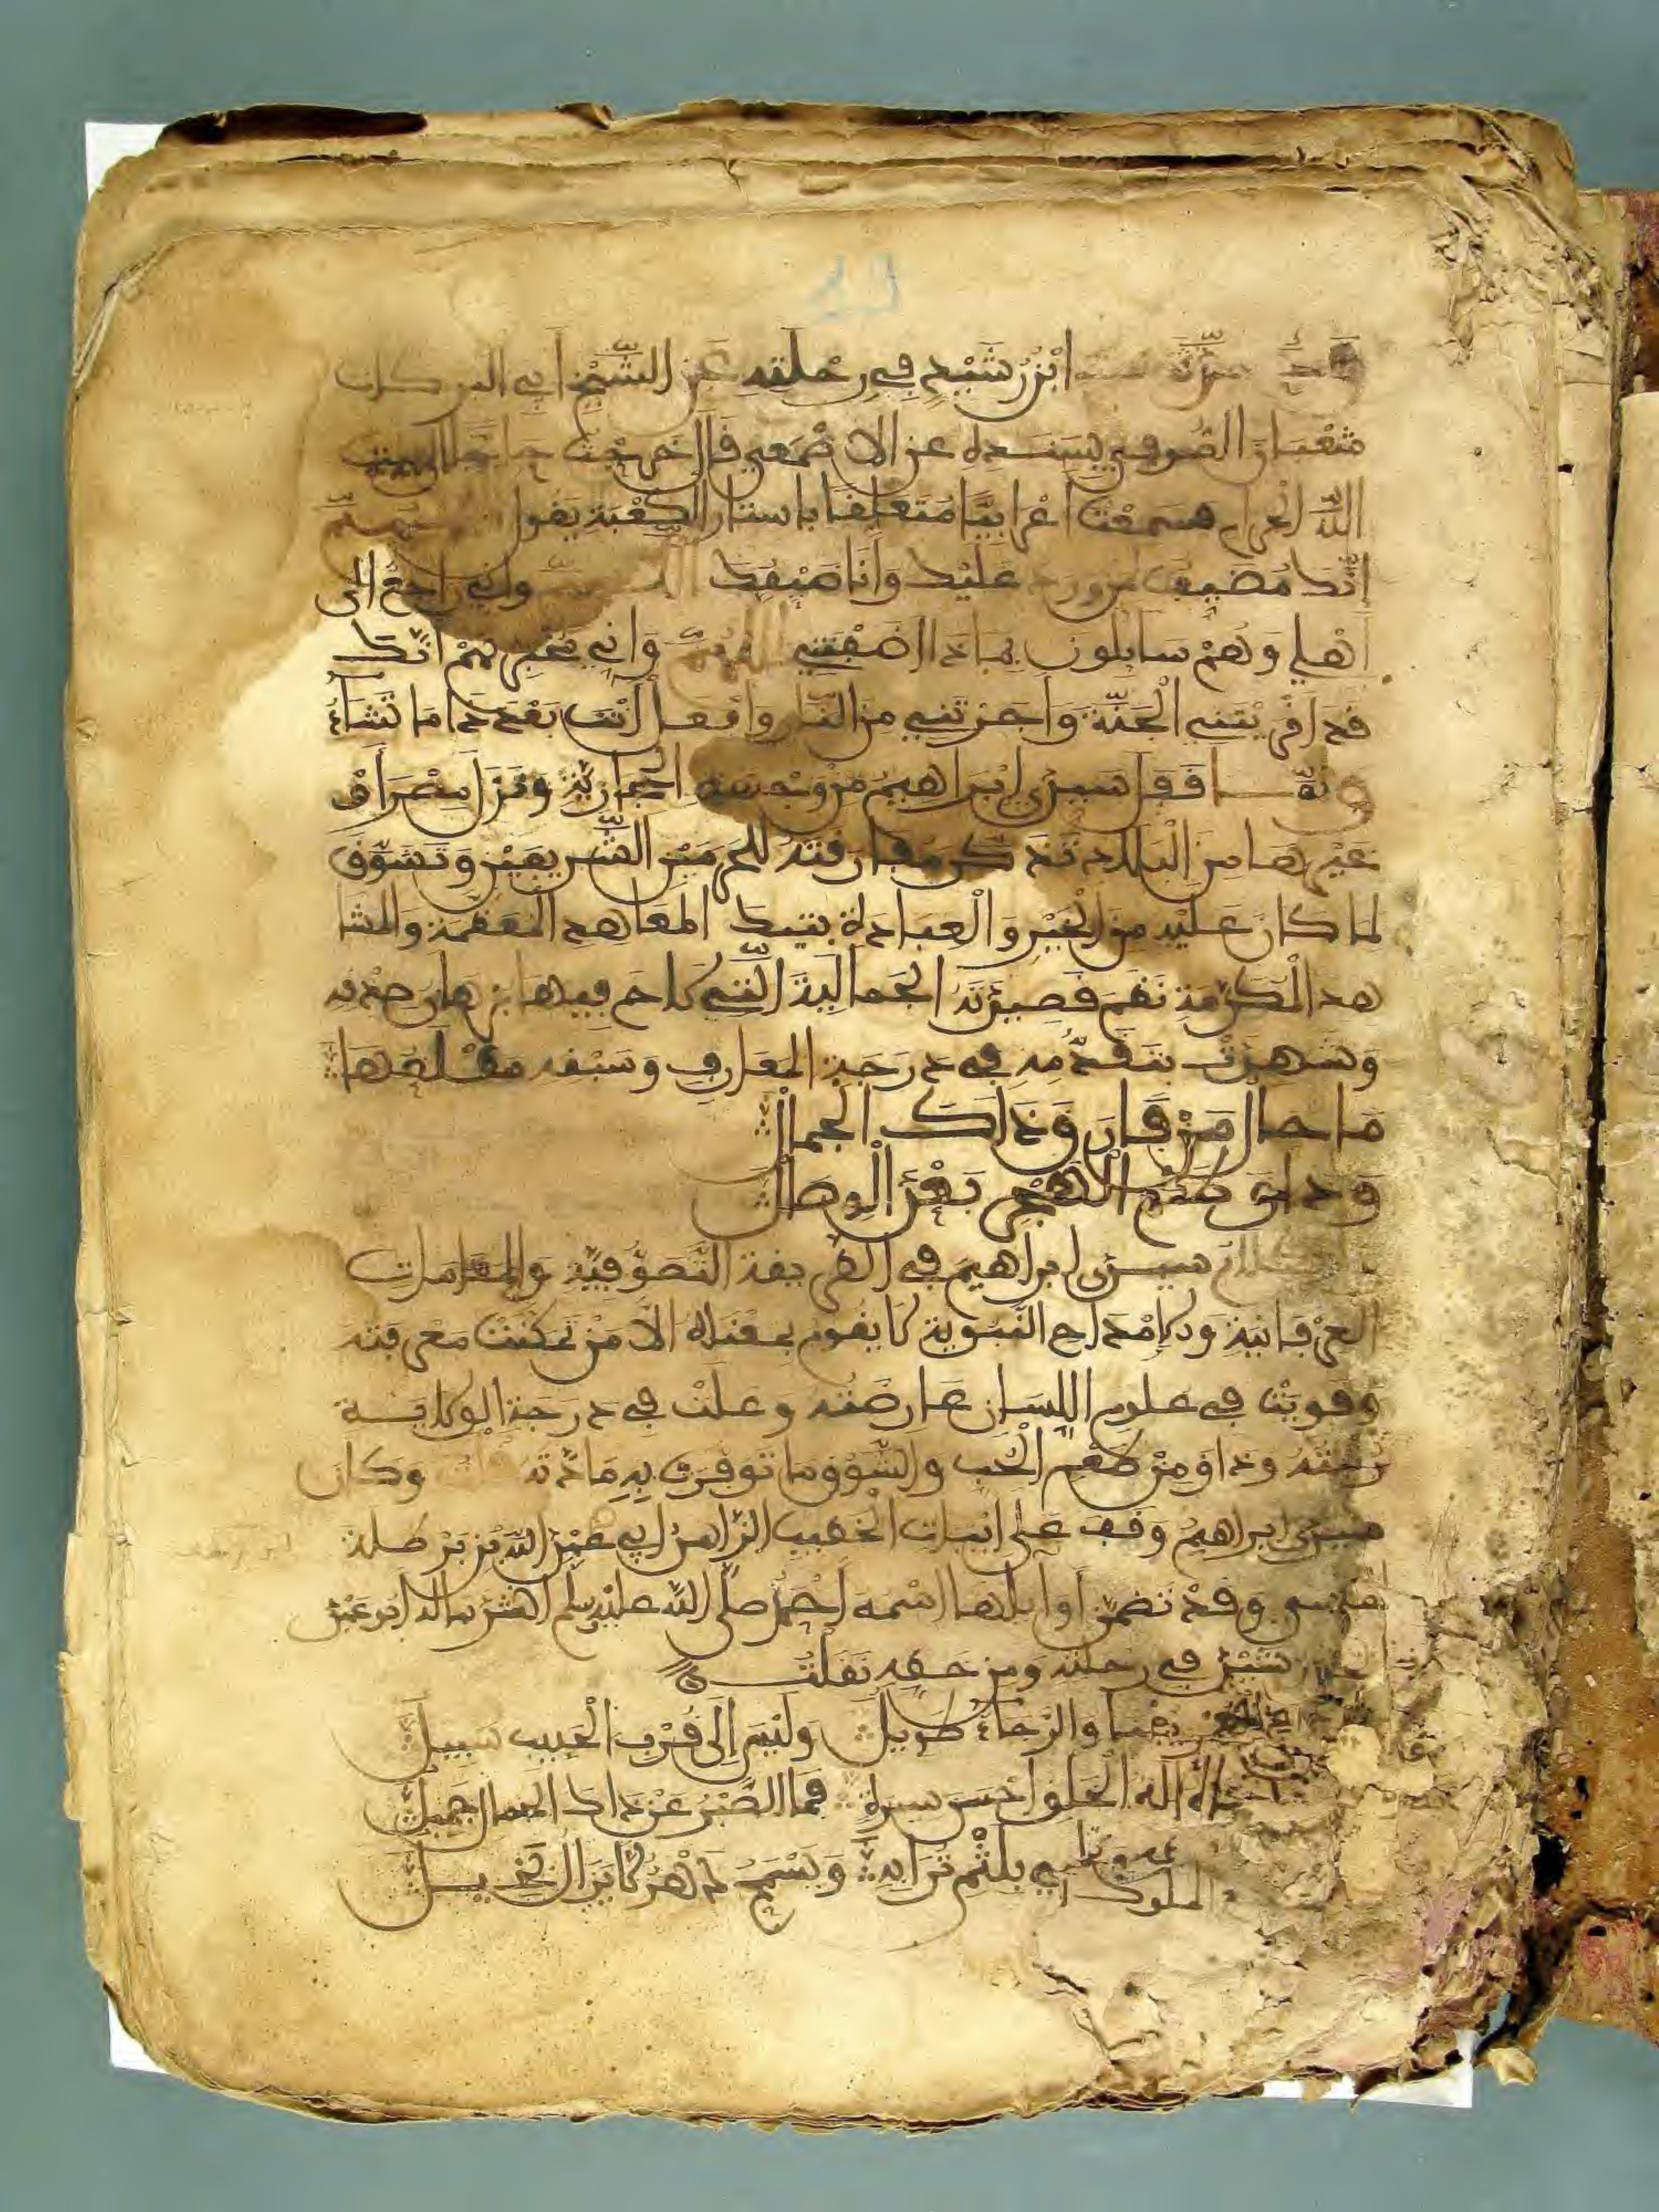 ابْنُ رُشَيْدٍ فِي رِحْلَتِهِ عَنِ الشَّيْخِ أَبِي البركات
شعبان الصُّوفي بِسَنَدِهِ عن الاصْمَعِي قال خَرَجْتُ حَاجًّا الى بيت
اللّه الحرام فسمعْتُ اعْرَابِيًّا مُتَعَلِّقًا باستار الكعْبَةِ يَقول
انّكَ مُضَيف من ورد عَلَيْك وَأَنَا ضَيْفُكَ واني راجعٌ الى
اهْلي وَهُمْ سايلون بماذا اضَفْتَنِي اللهُمّ وَاني مخبِرهُمْ انّكَ
قد اقْرَيْتَنِي الْجَنّةَ وَأَجَرْتَنِي من النّار وافعل أَنْتَ بَعْدَ ذا مَا تَشَاءُ
وَلَمّا قفل سيدي ابْرَاهيمُ منْ وجهته الحجازيّةِ ونَزَلَ مِصْرَ أَوْ
غيرَهَا من البلاد تَذَكرَ مفارقتهُ للحَرَمَيْن الشّريفيْن وَتَشَوَّقَ
لما كانَ عَليْه من الْخَيْر وَالْعبادة بتيك المَعَاهد المعَظّمة والمشا
هد المكرّمة نَظَمَ قصيدَتَهُ الجمالية الّتي لاح فيها برهان صدْقه
وَشهدَتْ بتقدُّمهِ في دَرَجَةِ المعَارف وَسَبْقه مَطْلعُهَا
مَا حالُ مَنْ فارَقَ ذَاكَ الجمالْ
وَذاقَ طَعْمَ الهَجْرِ بَعْدَ الْوِصَالْ
كلامُ سيدي ابراهيمَ في الطريقة التَّصَوُّفيّةِ وَالمَقَامات
العرْفانية والامْدَاحِ النّبَوية لا يقوم بمقتضاه الّا مَنْ تمكنَتْ معرفته
وقويَتْ في علوم اللّسَان عَارضَتُه وَعلَتْ في درَجَة الولاية
رتبته وذاق مِنْ طَعْمِ الْحُب والشّوْق ما توفرَت بِهِ مَادّتهُ قلت وكان
سيدي ابراهيمُ وَقَفَ عَلى ابْيات الخطيب الزّاهد ابي عَبْد اللّه بْن بَرْطلة
وقدْ تَضمّن أوايلها اسْمَهُ أَحْمَدُ صلى اللّه عليْه وسلّم انشدنا له ابو عبْد
رشيْد في رحلته ومن خطهِ نَقَلتُ
وَالرّجَاءُ طَويلُ وَلَيْسَ إِلَى قُرْبِ الْحَبيب سَبِيلُ
إله الْخلق أحْسَنَ سيرة فَمَا الصَّبْرُ عَنْ ذاك الجمال جميلُ
بلثْمِ تُرَابه وَيَسْمَحُ دَهْرٌ لَا يَزَالُ بَخِيلُ